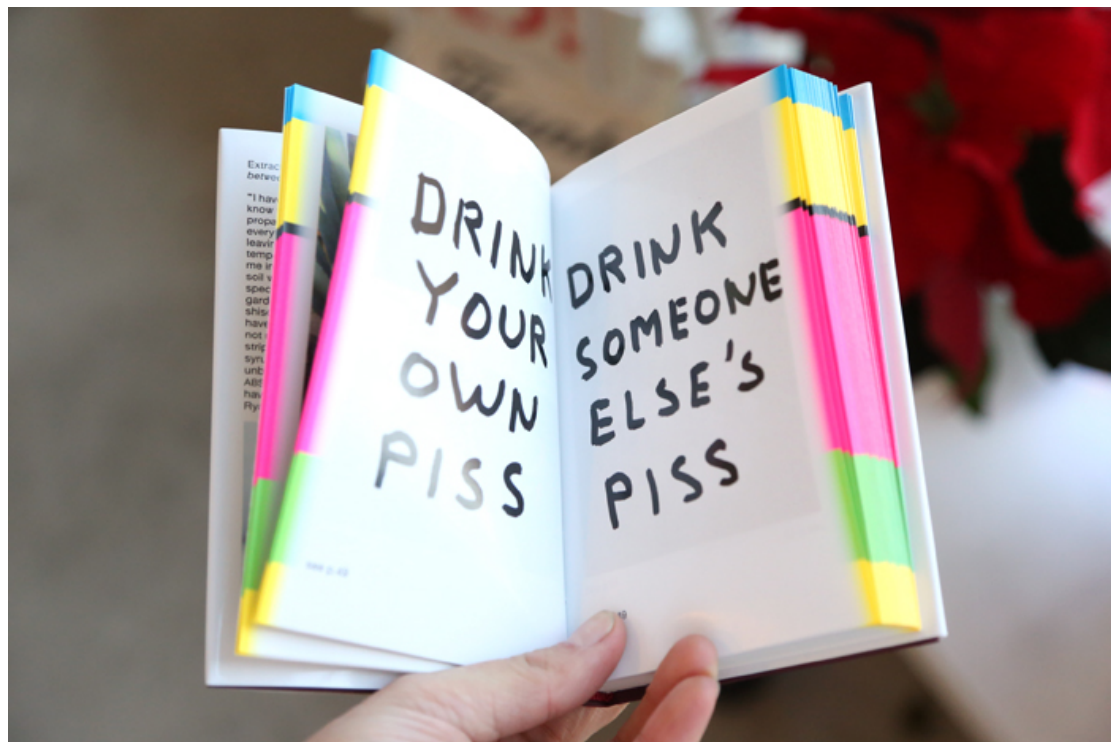 Extrac
betwee
"I hav
know
propa
every
leavin
temp
me in
soil w
spec
gard
shis
have
not
strip
syru
unb
hav
DRINK
YOUR
OWN
PISS
see p.
DRINK
SOMEONE
ELSE'S
PISS